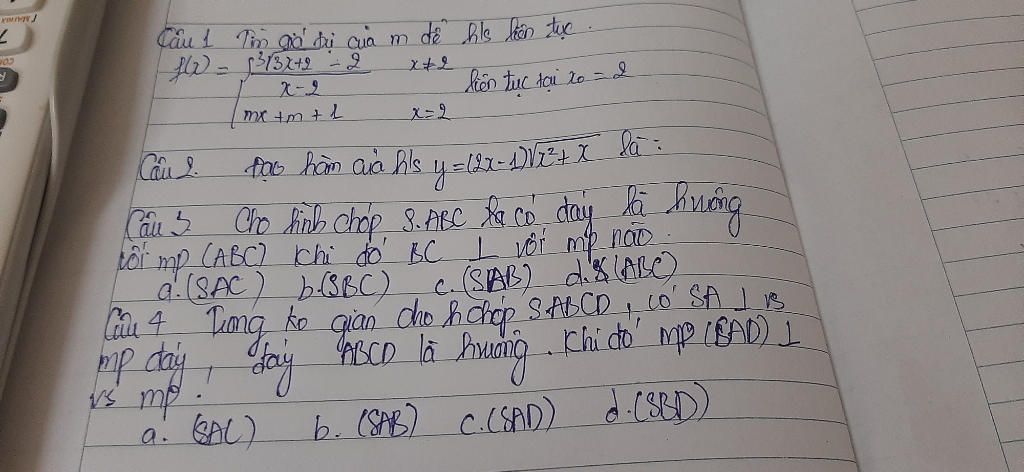 Câu 1 Tìm giá trị của m để h/s liên tục.
f(x) = { (∛(3x+2) - 2)/(x-2) x≠2
mx + m + 1 x=2
liên tục tại x₀ = 2
Câu 2. Đạo hàm của h/s y=(2x-1)√(x²+x) là:
Câu 3 Cho hình chóp S.ABC ta có đáy là huông
với mp (ABC) khi đó BC ⊥ với mp nào.
a.(SAC) b.(SBC) c.(SAB) d.(ABC)
Câu 4 Trong ko gian cho h chóp S.ABCD, có SA ⊥ vs
mp đáy, đáy ABCD là huông. Khi đó mp (SAD) ⊥
vs mp.
a. (SAC) b. (SAB) c.(SAD) d.(SBD)